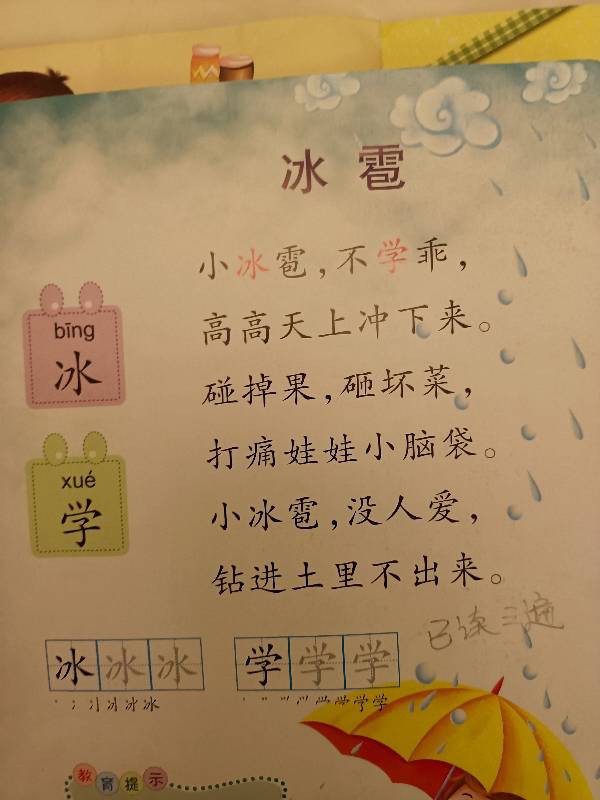 冰雹
小冰雹，不学乖，
高高天上冲下来。
碰掉果，砸坏菜，
打痛娃娃小脑袋。
小冰雹，没人爱，
钻进土里不出来。
bīng
冰
xué
学
已读三遍
冰冰冰
学学学
教育提示